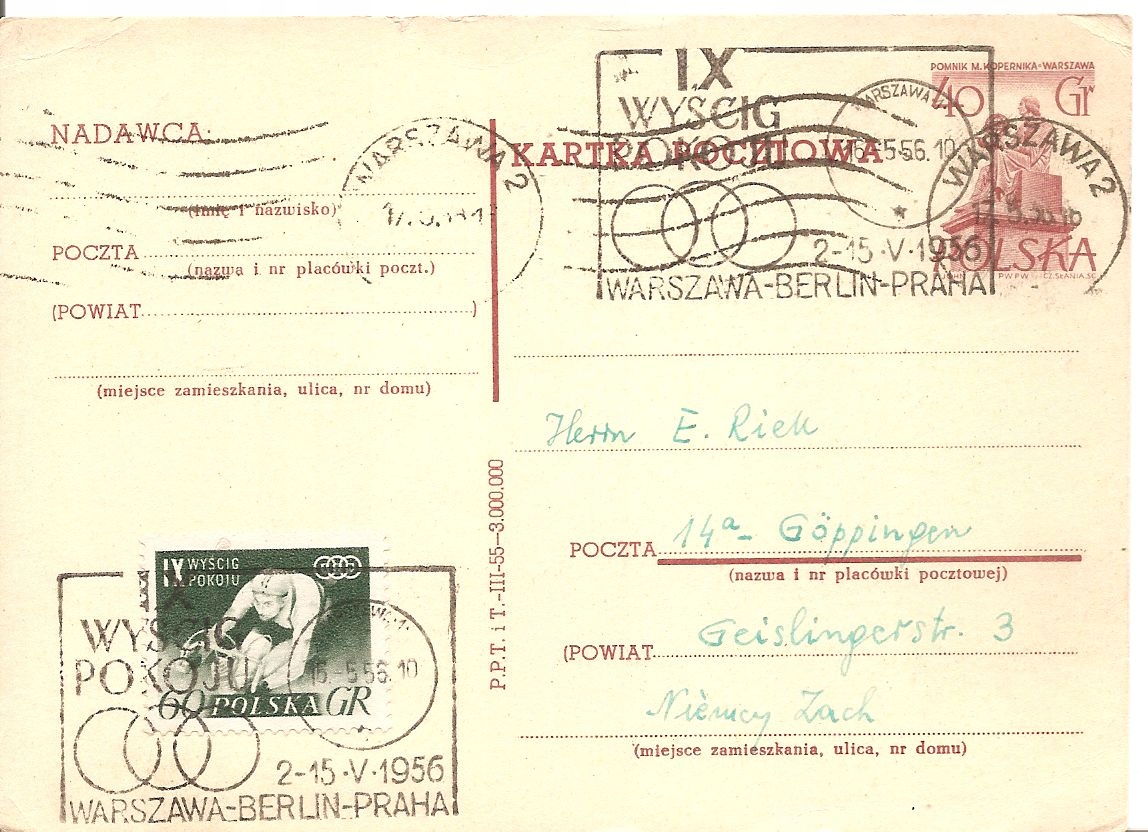 POMNIK M. KOPERNIKA-WARSZAWA
40 Gr
POLSKA
PWPW CZ.SŁANIA.SC.
KARTKA POCZTOWA
IX
WYŚCIG
POKOJU
2-15·V·1956
WARSZAWA-BERLIN-PRAHA
WARSZAWA
16.-5.56.10
WARSZAWA 2
WARSZAWA 2
NADAWCA:
(imię i nazwisko)
POCZTA
(nazwa i nr placówki poczt.)
(POWIAT )
(miejsce zamieszkania, ulica, nr domu)
Herrn E. Riek
POCZTA 14a- Göppingen
(nazwa i nr placówki pocztowej)
(POWIAT Geislingerstr. 3
Niemcy Zach
(miejsce zamieszkania, ulica, nr domu)
P.P.T. i T.-III-55-3.000.000
IX WYŚCIG
POKOJU
60 POLSKA GR
IX
WYŚCIG
POKOJU
16.-5.56.10
2-15·V·1956
WARSZAWA-BERLIN-PRAHA